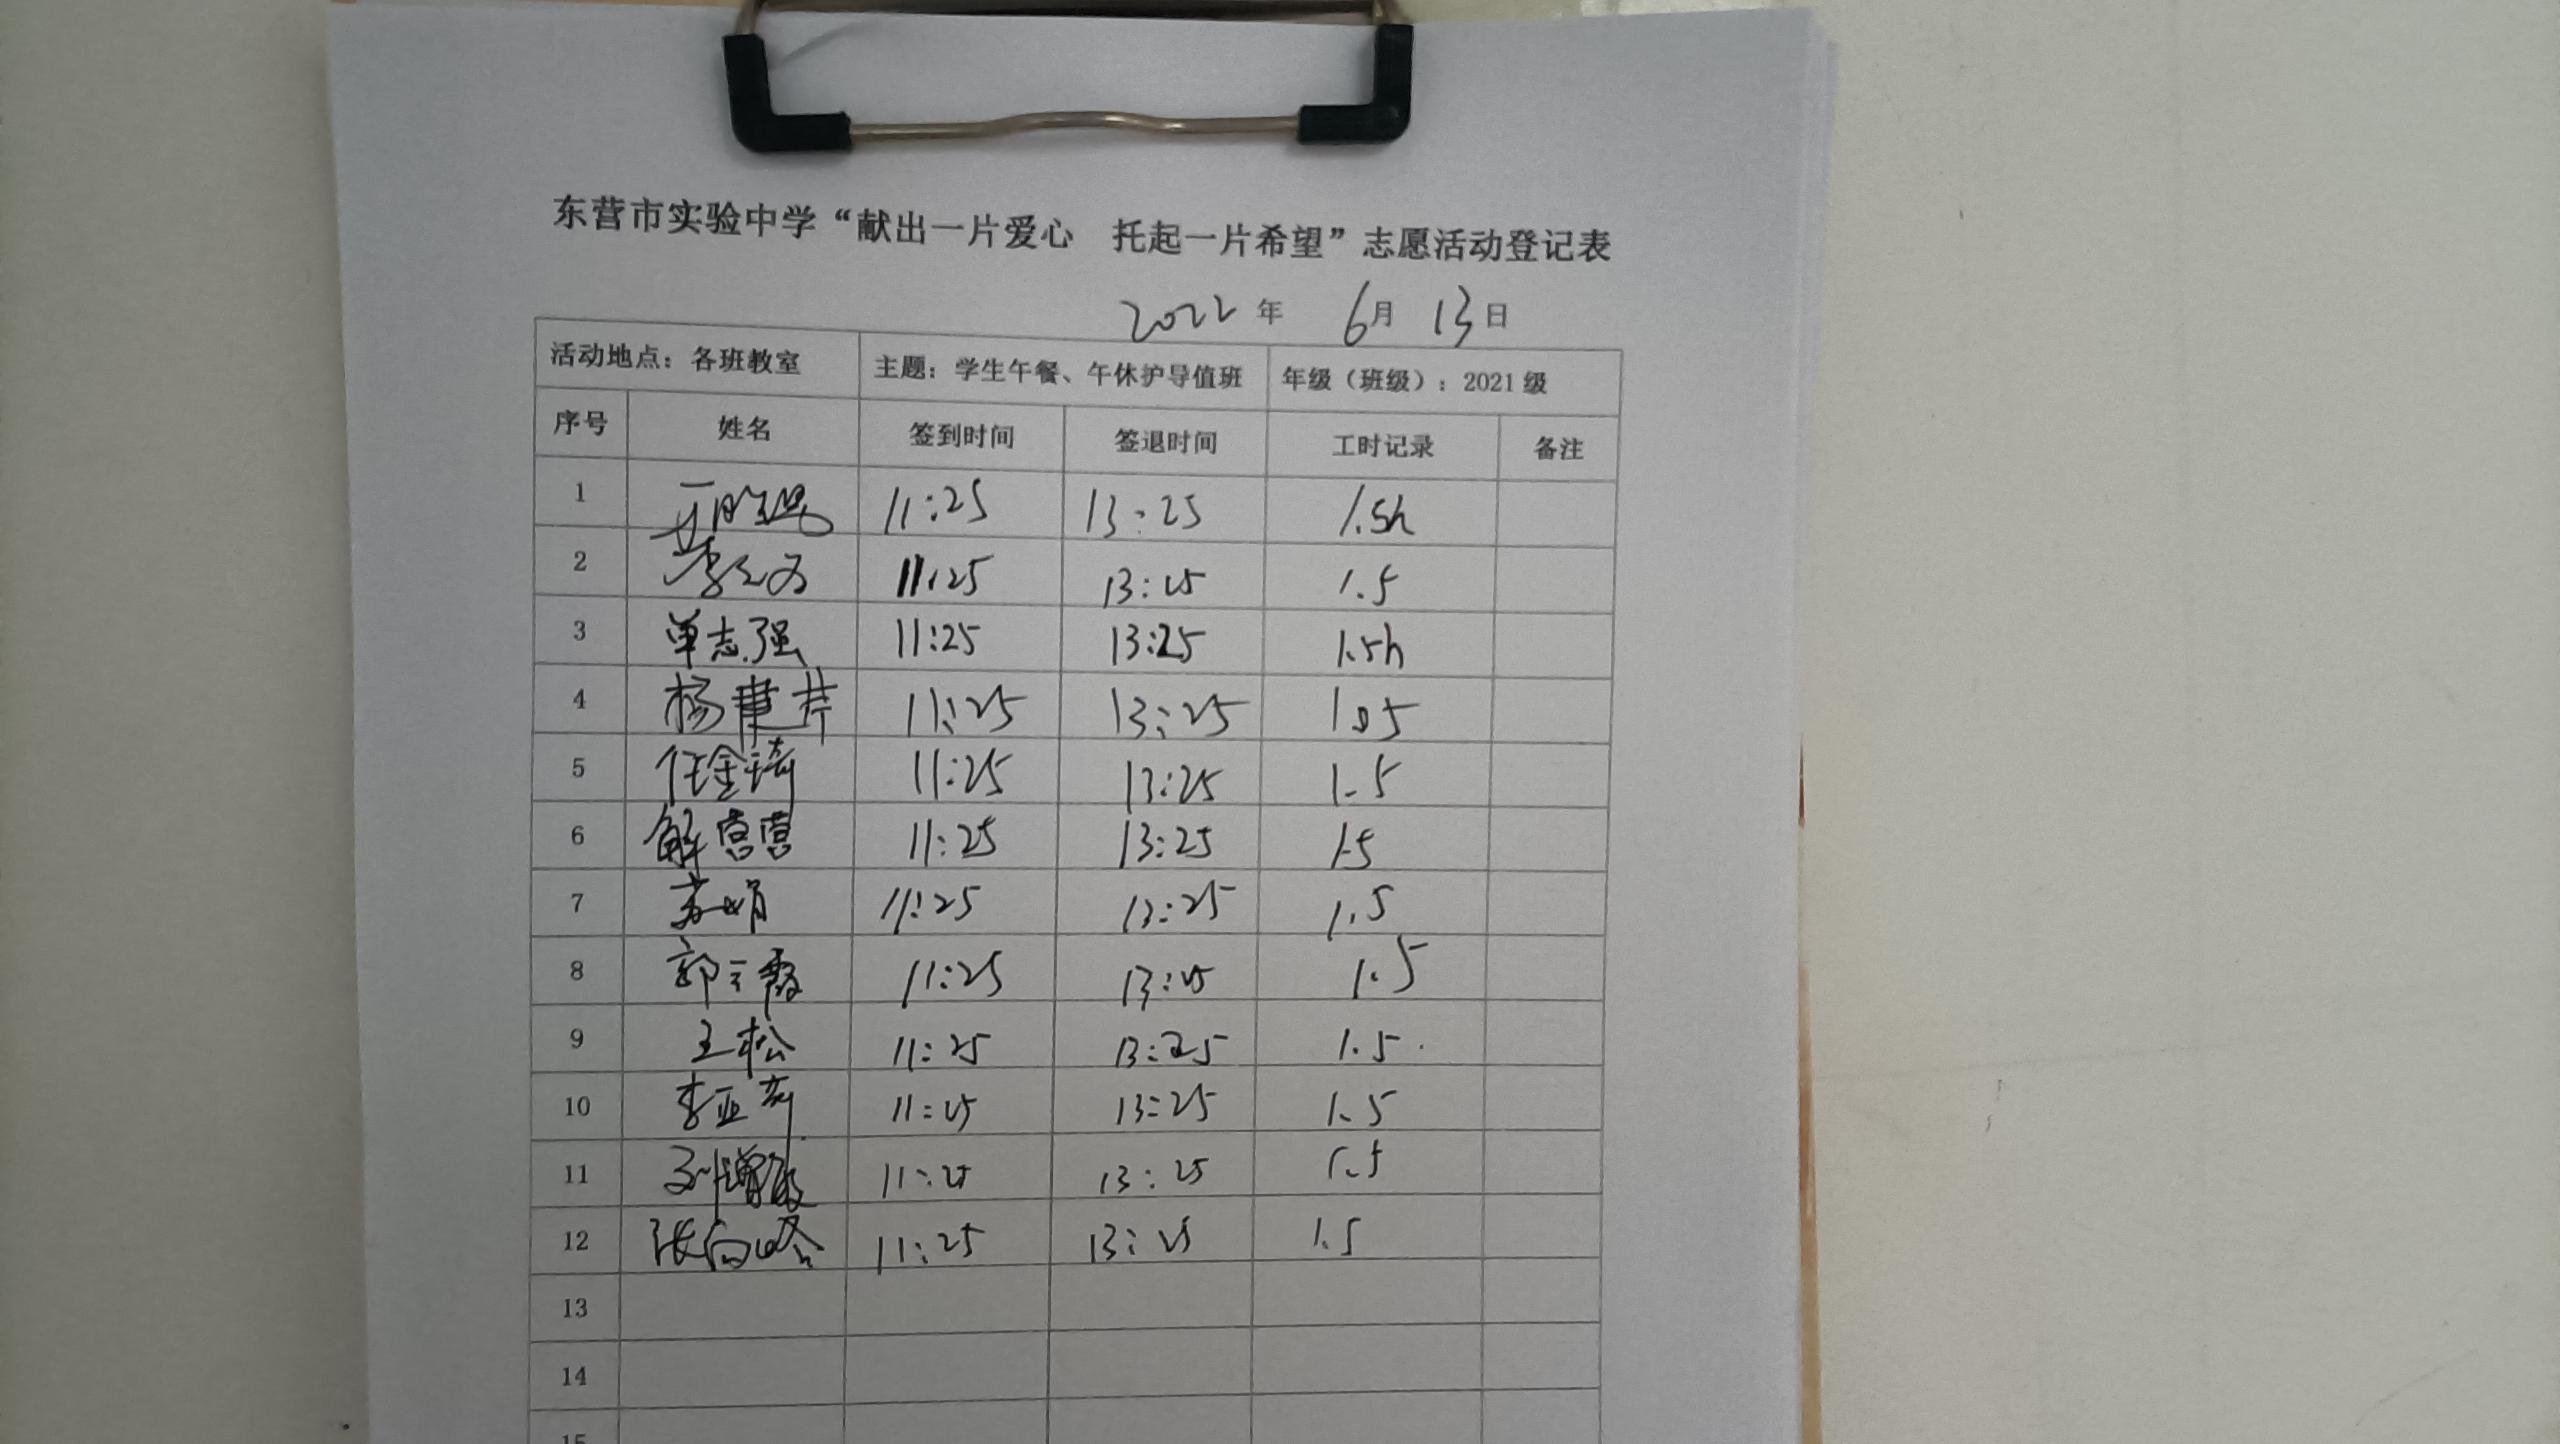 东营市实验中学“献出一片爱心 托起一片希望”志愿活动登记表
2022年 6月 13日
活动地点：各班教室 主题：学生午餐、午休护导值班 年级（班级）：2021级
序号 姓名 签到时间 签退时间 工时记录 备注
1 11:25 13:25 1.5h
2 11:25 13:25 1.5
3 单志强 11:25 13:25 1.5h
4 杨建芹 11:25 13:25 1.5
5 任金琦 11:25 13:25 1.5
6 解营营 11:25 13:25 1.5
7 苏娟 11:25 13:25 1.5
8 郭云霞 11:25 13:25 1.5
9 王松 11:25 13:25 1.5
10 李亚莉 11:25 13:25 1.5
11 刘增敏 11:25 13:25 1.5
12 张向峰 11:25 13:25 1.5
13
14
15